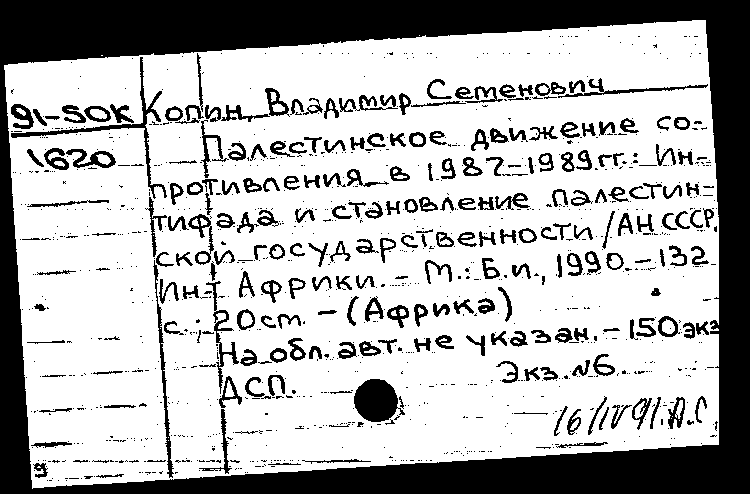 91-50К Копин, Владимир Семенович
1620 Палестинское движение со-
противления в 1987-1989гг.: Ин-
тифада и становление палестин-
ской государственности /АН СССР,
Ин-т Африки. - М.: Б.и., 1990. - 132
с.; 20см. - (Африка)
На обл. авт. не указан. - 150 экз
ДСП. Экз. №6.
16/IV 91. А.С.
9